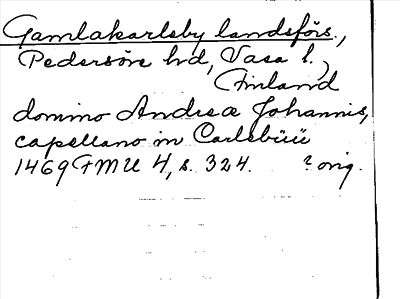 Gamlakarleby landsförs.,
Pedersöre hd, Vasa l.,
Finland
domino Andreæ Johannis,
capellano in Carlebüü
1469 FMU 4, s. 324. ? orig.